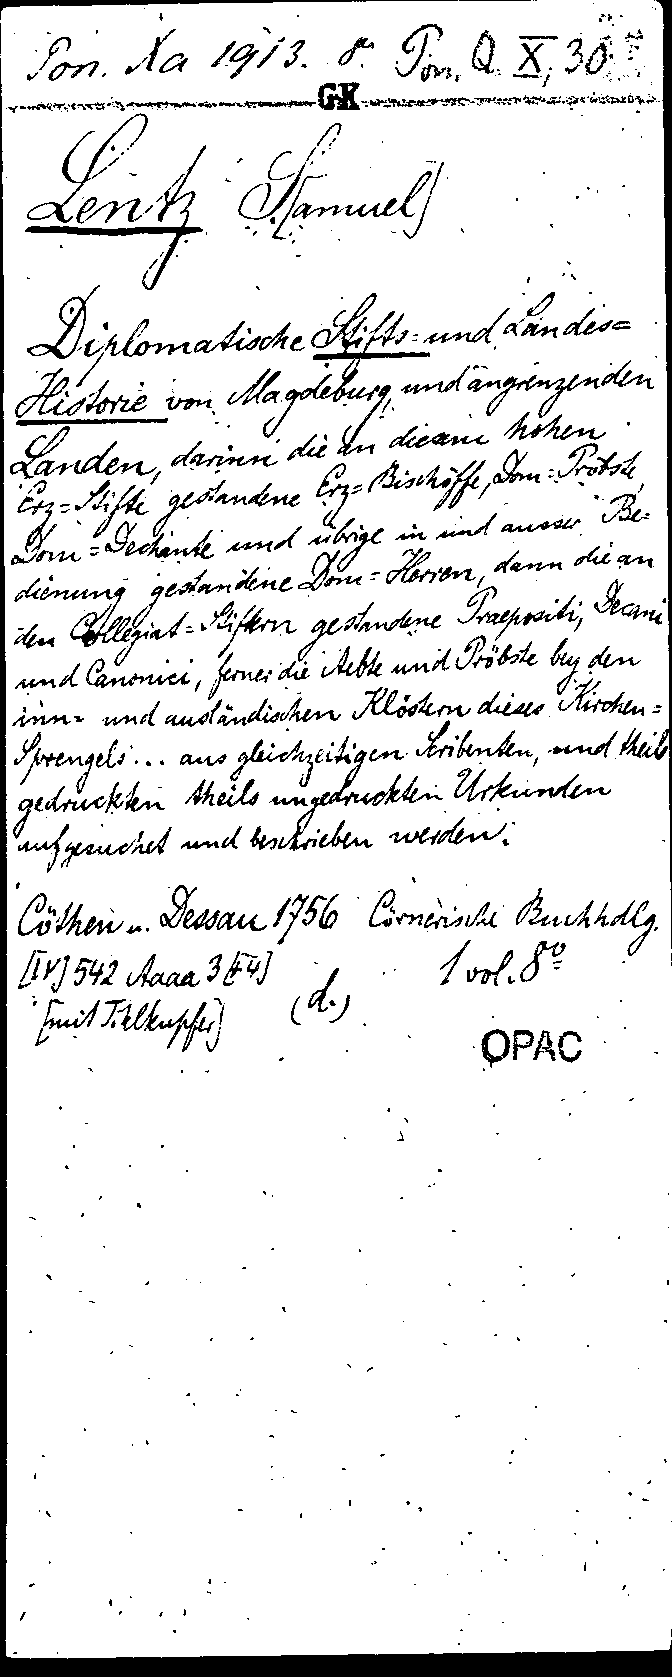 Pon. Xa 1913. 8° Pon. Q X, 30
GK
Lentz S[amuel]
Diplomatische Stifts= und Landes=
Historie von Magdeburg, und angrenzenden
Landen, darinn die an diesem hohen
Erz=Stifte gestandene Erz=Bischöffe, Dom=Pröbste,
Dom=Dechante und übrige in und ausser Be=
dienung gestandene Dom=Herren, dann die an
den Collegiat=Stiftern gestandene Praepositi, Decani
und Canonici, ferner die Aebte und Pröbste bey den
inn= und ausländischen Klöstern dieses Kirchen=
Sprengels ... aus gleichzeitigen Scribenten, und theils
gedruckten theils ungedruckten Urkunden
aufgesuchet und beschrieben werden.
Cöthen u. Dessau 1756 Cörnerische Buchhdlg.
[IV] 542 Aaaa 3 [+4] 1 vol. 8°
[mit Titelkupfer] (d.)
OPAC